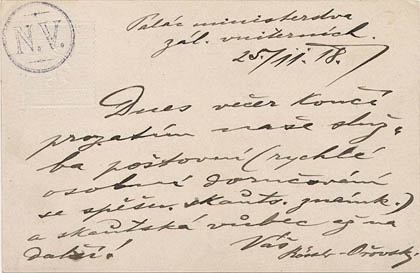 N.V.
Palác ministerstva
zál. vnitřních.
25./11. 18.
Dnes večer končí
prozatím naše služ-
ba poštovní (rychlé
osobní doručování
se spěšn. skauts. známk.)
a skautská vůbec až na
další!
Váš
Rössler-Ořovský